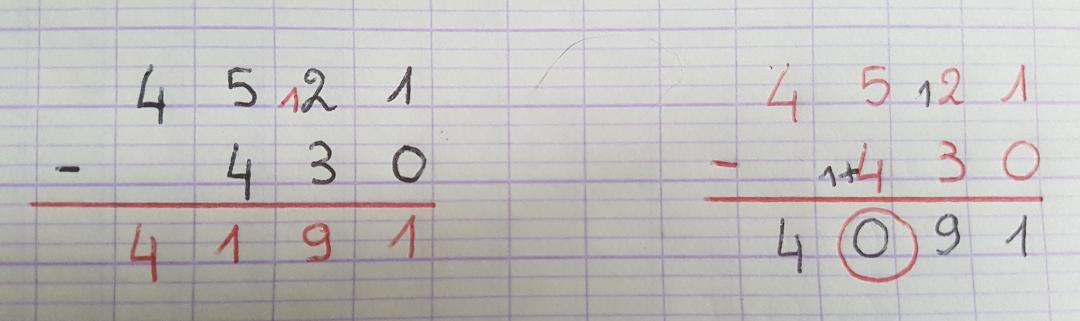 4 5 12 1
- 4 3 0
4 1 9 1
4 5 12 1
- 1+4 3 0
4 0 9 1